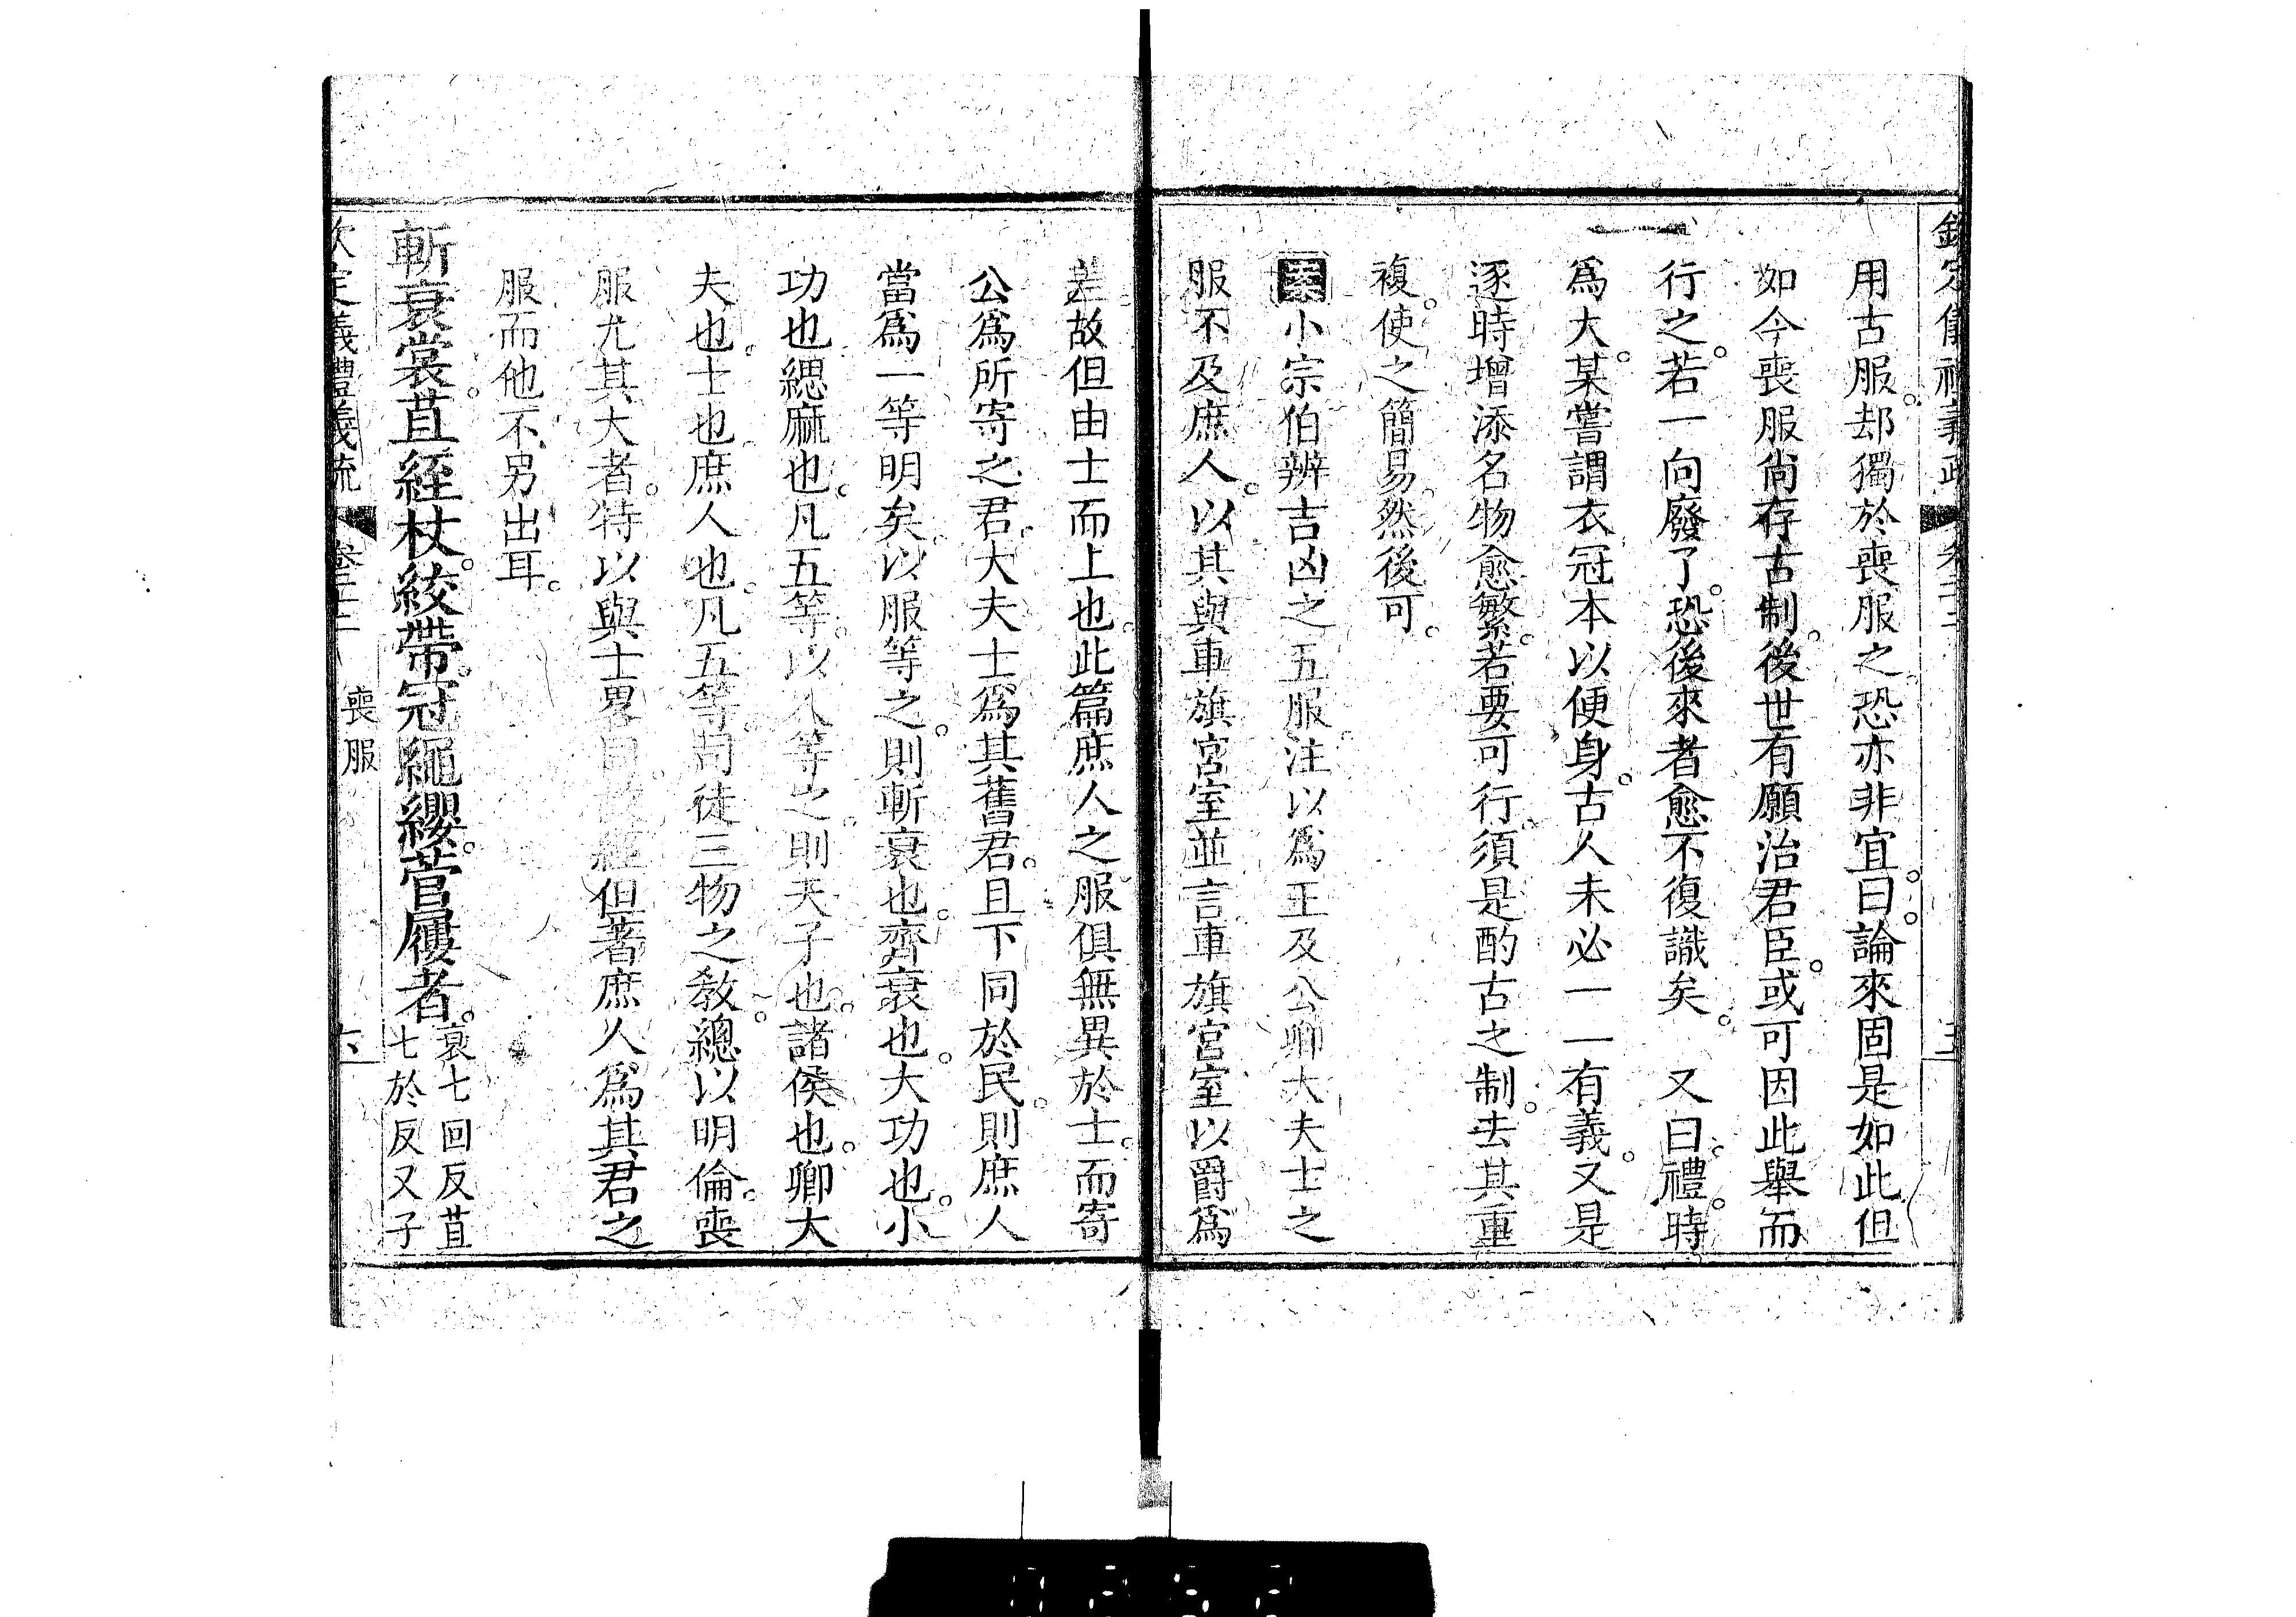 用古服却獨於喪服之恐亦非宜曰論來固是如此但
如今喪服尚存古制後世有願治君臣或可因此舉而
行之若一向廢了恐後來者愈不復識矣　又曰禮時
爲大某嘗謂衣冠本以便身古人未必一一有義又是
逐時增添名物愈繁若要可行須是酌古之制去其重
複使之簡易然後可
案小宗伯辨吉凶之五服注以爲王及公卿大夫士之
服不及庶人以其與車旗宮室並言車旗宮室以爵爲
差故但由士而上也此篇庶人之服俱無異於士而寄
公爲所寄之君大夫士爲其舊君且下同於民則庶人
當爲一等明矣以服等之則斬衰也齊衰也大功也小
功也緦麻也凡五等以人等之則天子也諸侯也卿大
夫也士也庶人也凡五等司徒三物之敎總以明倫喪
服尤其大者特以與士畧同故經但著庶人爲其君之
服而他不另出耳
斬衰裳苴絰杖絞帶冠繩纓菅屨者衰七回反苴
七於反又子
欽定義禮義疏　卷二十二　喪服　六